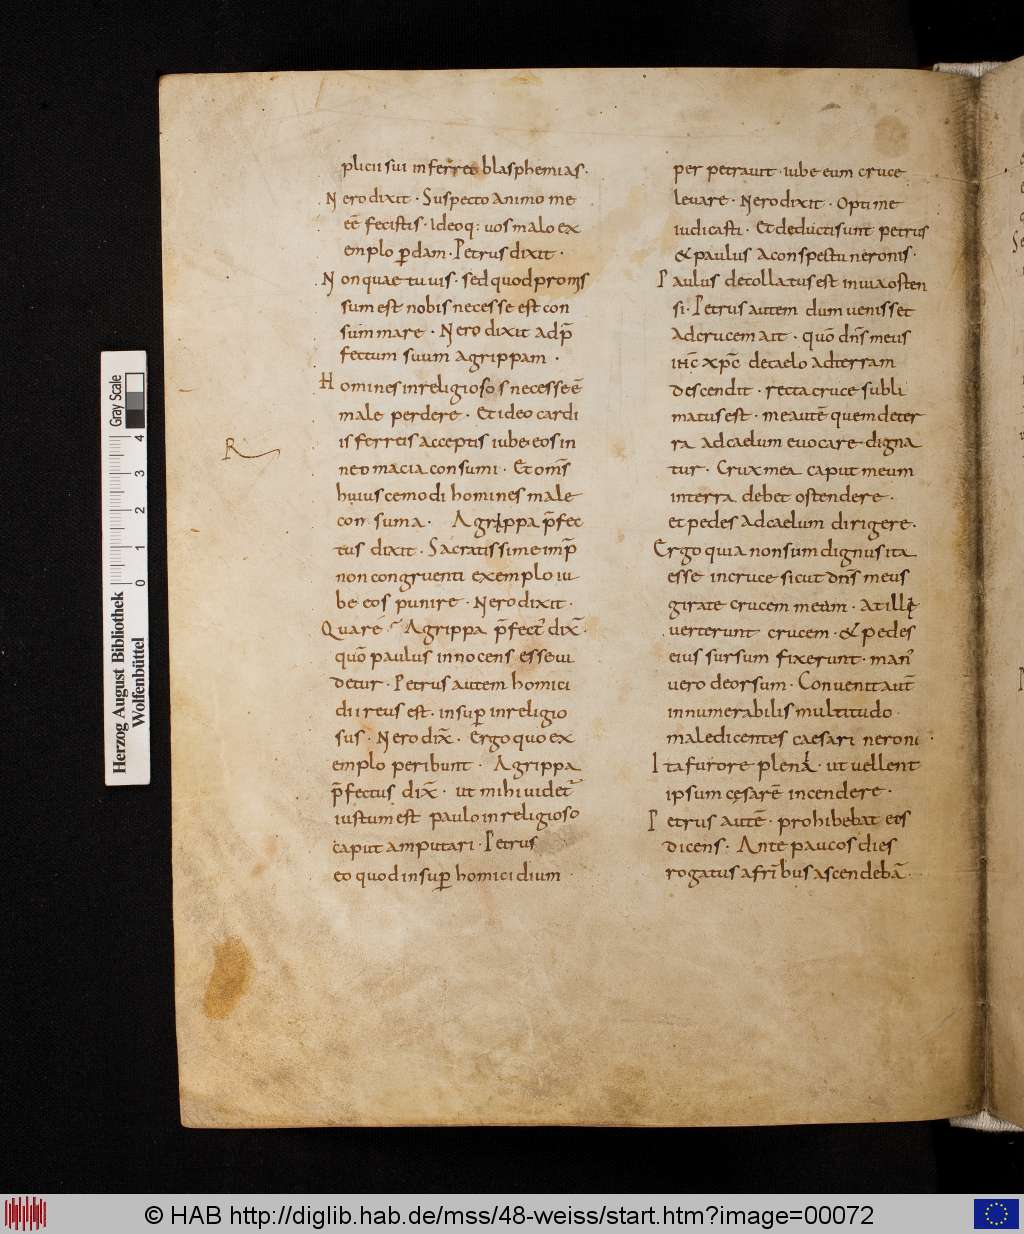 plicii sui inferret blasphemias·
Nero dixit · Suspecto animo me
eē fecistis · ideoq: uos malo ex
emplo ꝑdam · Petrus dixit ·
Non quae tu uis · sed quod promis
sum est nobis necesse est con
summare · Nero dixit ad p̄
fectum suum agrippam ·
Homines inreligiosos necesse ē
male perdere · Et ideo cardi
is ferreis acceptis iube eos in
neomacia consumi · Et om̄s
huiuscemodi homines male
consuma · Agrippa p̄fec
tus dixit · Sacratissime imp̄
non congruenti exemplo iu
be eos punire · Nero dixit ·
Quare · Agrippa p̄fect' dix̄ ·
quō paulus innocens esse ui
detur · Petrus autem homici
dii reus est · insuꝑ inreligio
sus · Nero dix̄ · Ergo quo ex
emplo peribunt · Agrippa
p̄fectus dix̄ · ut mihi uidet'
iustum est paulo inreligioso
caput amputari · Petrus
eo quod insuꝑ homicidium ·
per petrauit · iube eum cruce
leuare · Nero dixit · Optime
iudicasti · Et deducti sunt petrus
& paulus a conspectu neronis ·
Paulus decollatus est in uia osten
si · Petrus autem dum uenisset
ad crucem ait · quō dn̄s meus
iħc xp̄c de caelo ad terram
descendit · recta cruce subli
matus est · me autē quem de ter
ra ad caelum euocare digna
tur · Crux mea caput meum
in terra debet ostendere ·
et pedes ad caelum dirigere ·
Ergo quia non sum dignus ita
esse in cruce sicut dn̄s meus
girate crucem meam · At illi
uerterunt crucem · & pedes
eius sursum fixerunt · man'
uero deorsum · Conuenit aut̄
innumerabilis multitudo ·
maledicentes caesari neroni ·
Ita furore plena · ut uellent
ipsum cęsarē incendere ·
Petrus autē · prohibebat eos
dicens · Ante paucos dies
rogatus a fr̄ibus ascendebā ·
R
Gray Scale
4
3
2
1
0
Herzog August Bibliothek
Wolfenbüttel
© HAB http://diglib.hab.de/mss/48-weiss/start.htm?image=00072